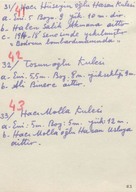 31/ Hacı Hüseyin Oğlu Hasan Kulesi
41
a. İni: 5. Boyu: 9 Yük. 10 m. dir.
b. Halen Salih Akmana aittir.
c. 1914-18 senesinde yıkılmıştır
Bodrum bombardımanında.
42
32/ Tosunoğlu Kulesi
a. İni 5.5 m. Boyu 8 m. yüksekliği 9 m.
b. Ali Binare aittir.
43
33/ Hacı Molla Kulesi
a. İni: 5 m. Boyu: 5 m. yük 12 m.
b. Hacı Molla oğlu Hasan Ustaya
aittir.